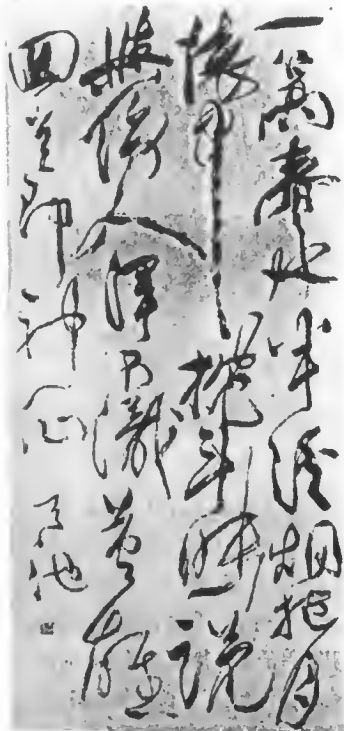 一篙春水半溪烟抱月
懷中枕斗眠說
與傍人渾不識英雄
回首即神仙 天池